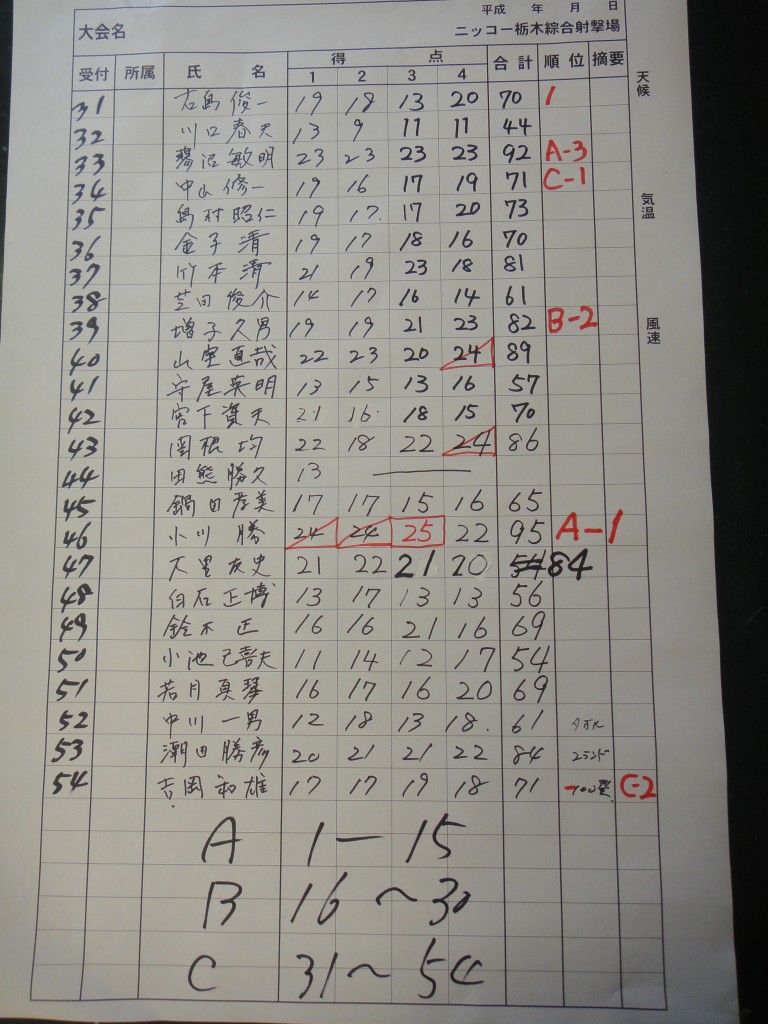 平成 年 月 日
大会名 ニッコー栃木綜合射撃場
受付 所属 氏 名 得 点 合計 順位 摘要
1 2 3 4
天候
気温
風速
31 石島俊一 19 18 13 20 70 1
32 川口春夫 13 9 11 11 44
33 鵜沼敏明 23 23 23 23 92 A-3
34 中山修一 19 16 17 19 71 C-1
35 島村昭仁 19 17 17 20 73
36 金子清 19 17 18 16 70
37 竹本清 21 19 23 18 81
38 芝田俊介 14 17 16 14 61
39 増子久男 19 19 21 23 82 B-2
40 山室直哉 22 23 20 24 89
41 守屋英明 13 15 13 16 57
42 宮下資夫 21 16 18 15 70
43 関根均 22 18 22 24 86
44 田熊勝久 13
45 鍋田 美 17 17 15 16 65
46 小川勝 24 24 25 22 95 A-1
47 大里友史 21 22 21 20 84
48 白石正博 13 17 13 13 56
49 鈴木正 16 16 21 16 69
50 小池己喜夫 11 14 12 17 54
51 若月真琴 16 17 16 20 69
52 中川一男 12 18 13 18 61
53 潮田勝彦 20 21 21 22 84 2ラウンド
54 吉岡和雄 17 17 19 18 71 C-2
A 1ー15
B 16~30
C 31~54